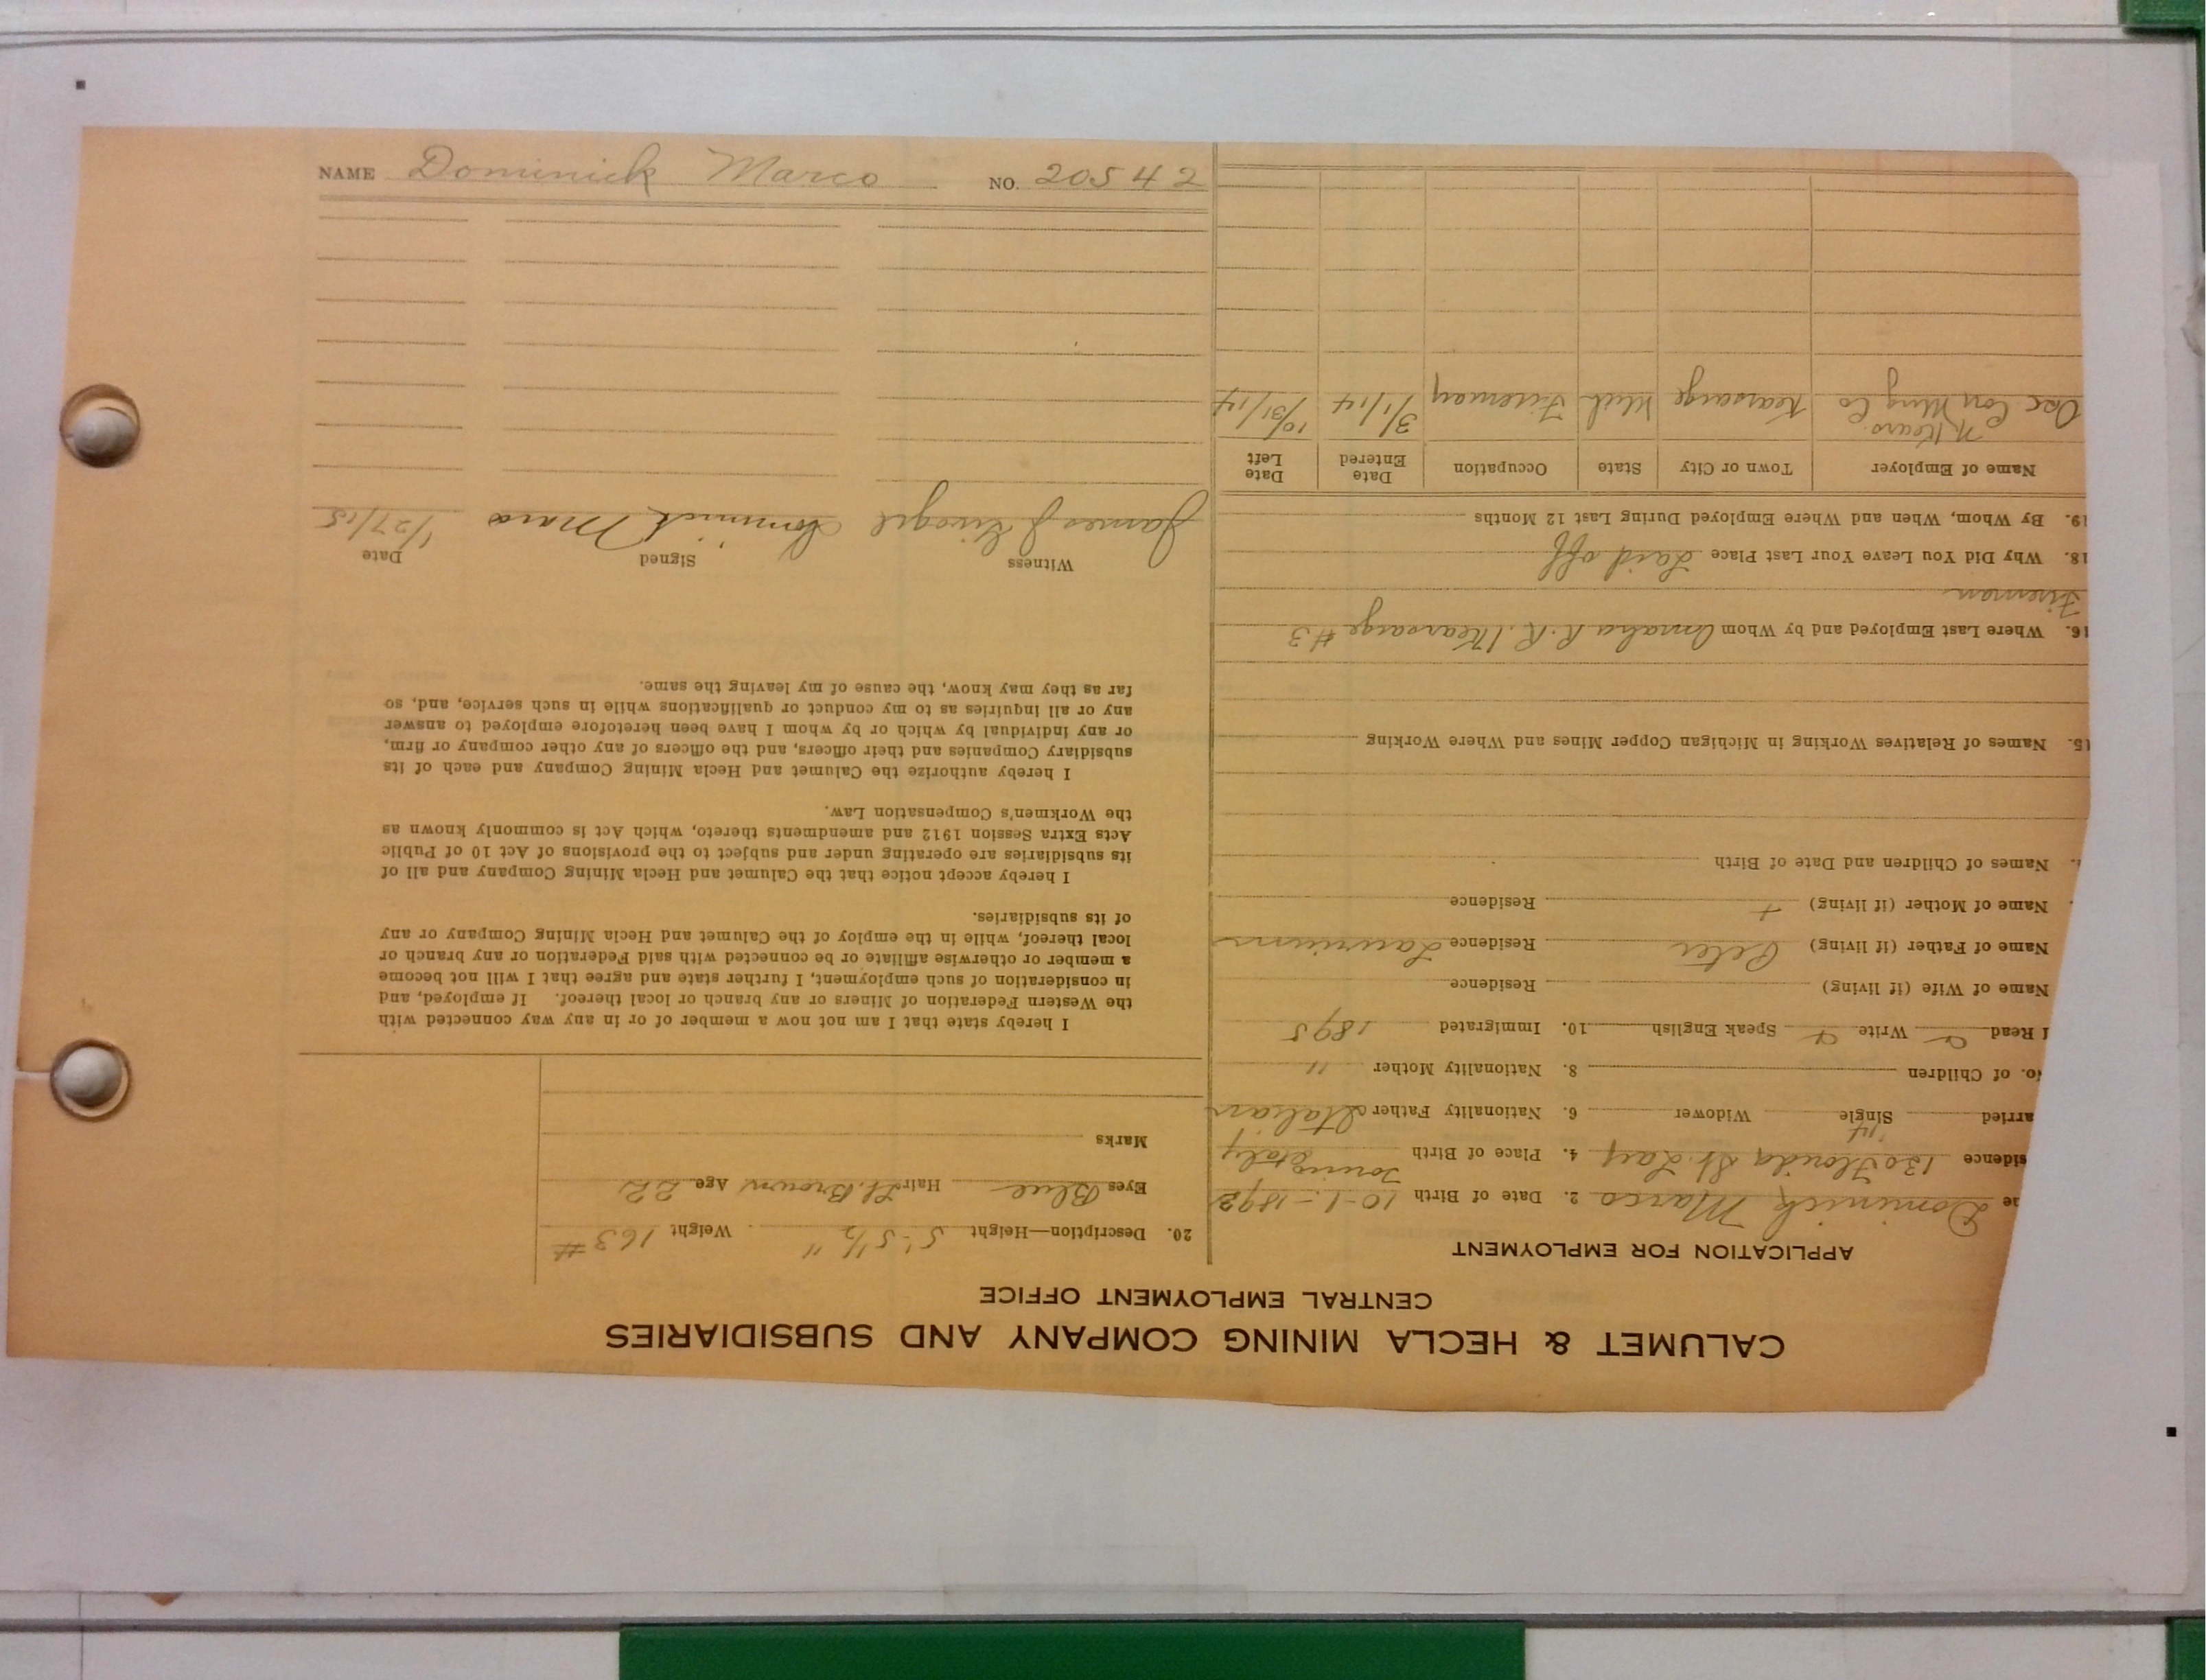 NAME Dominick Marco NO. 20542
CALUMET & HECLA MINING COMPANY AND SUBSIDIARIES
CENTRAL EMPLOYMENT OFFICE
APPLICATION FOR EMPLOYMENT
ne Dominick Marco 2. Date of Birth 10-1-1892
sidence 130 Florida St. Lau 4. Place of Birth Italy
arried Single Widower 6. Nationality Father Italian
o. of Children 8. Nationality Mother "
Read Write Speak English 10. Immigrated 1895
Name of Wife (if living) Residence
Name of Father (if living) Peter Residence Laurium
Name of Mother (if living) + Residence
Names of Children and Date of Birth
15. Names of Relatives Working in Michigan Copper Mines and Where Working
16. Where Last Employed and by Whom R. R. Kearsarge #3
Fireman
18. Why Did You Leave Your Last Place Laid off
19. By Whom, When and Where Employed During Last 12 Months
Name of Employer Town or City State Occupation Date Entered Date Left
N Kears.
Osc Con Mng Co Kearsarge Mich Fireman 3/1/14 10/31/14
20. Description—Height 5'-5 1/2" Weight 163#
Eyes Blue Hair Lt. Brown Age 22
Marks
I hereby state that I am not now a member of or in any way connected with
the Western Federation of Miners or any branch or local thereof. If employed, and
in consideration of such employment, I further state and agree that I will not become
a member or otherwise affiliate or be connected with said Federation or any branch or
local thereof, while in the employ of the Calumet and Hecla Mining Company or any
of its subsidiaries.
I hereby accept notice that the Calumet and Hecla Mining Company and all of
its subsidiaries are operating under and subject to the provisions of Act 10 of Public
Acts Extra Session 1912 and amendments thereto, which Act is commonly known as
the Workmen's Compensation Law.
I hereby authorize the Calumet and Hecla Mining Company and each of its
subsidiary Companies and their officers, and the officers of any other company or firm,
or any individual by which or by whom I have been heretofore employed to answer
any or all inquiries as to my conduct or qualifications while in such service, and, so
far as they may know, the cause of my leaving the same.
Witness Signed Date
James J Dominick Marco 1/27/15